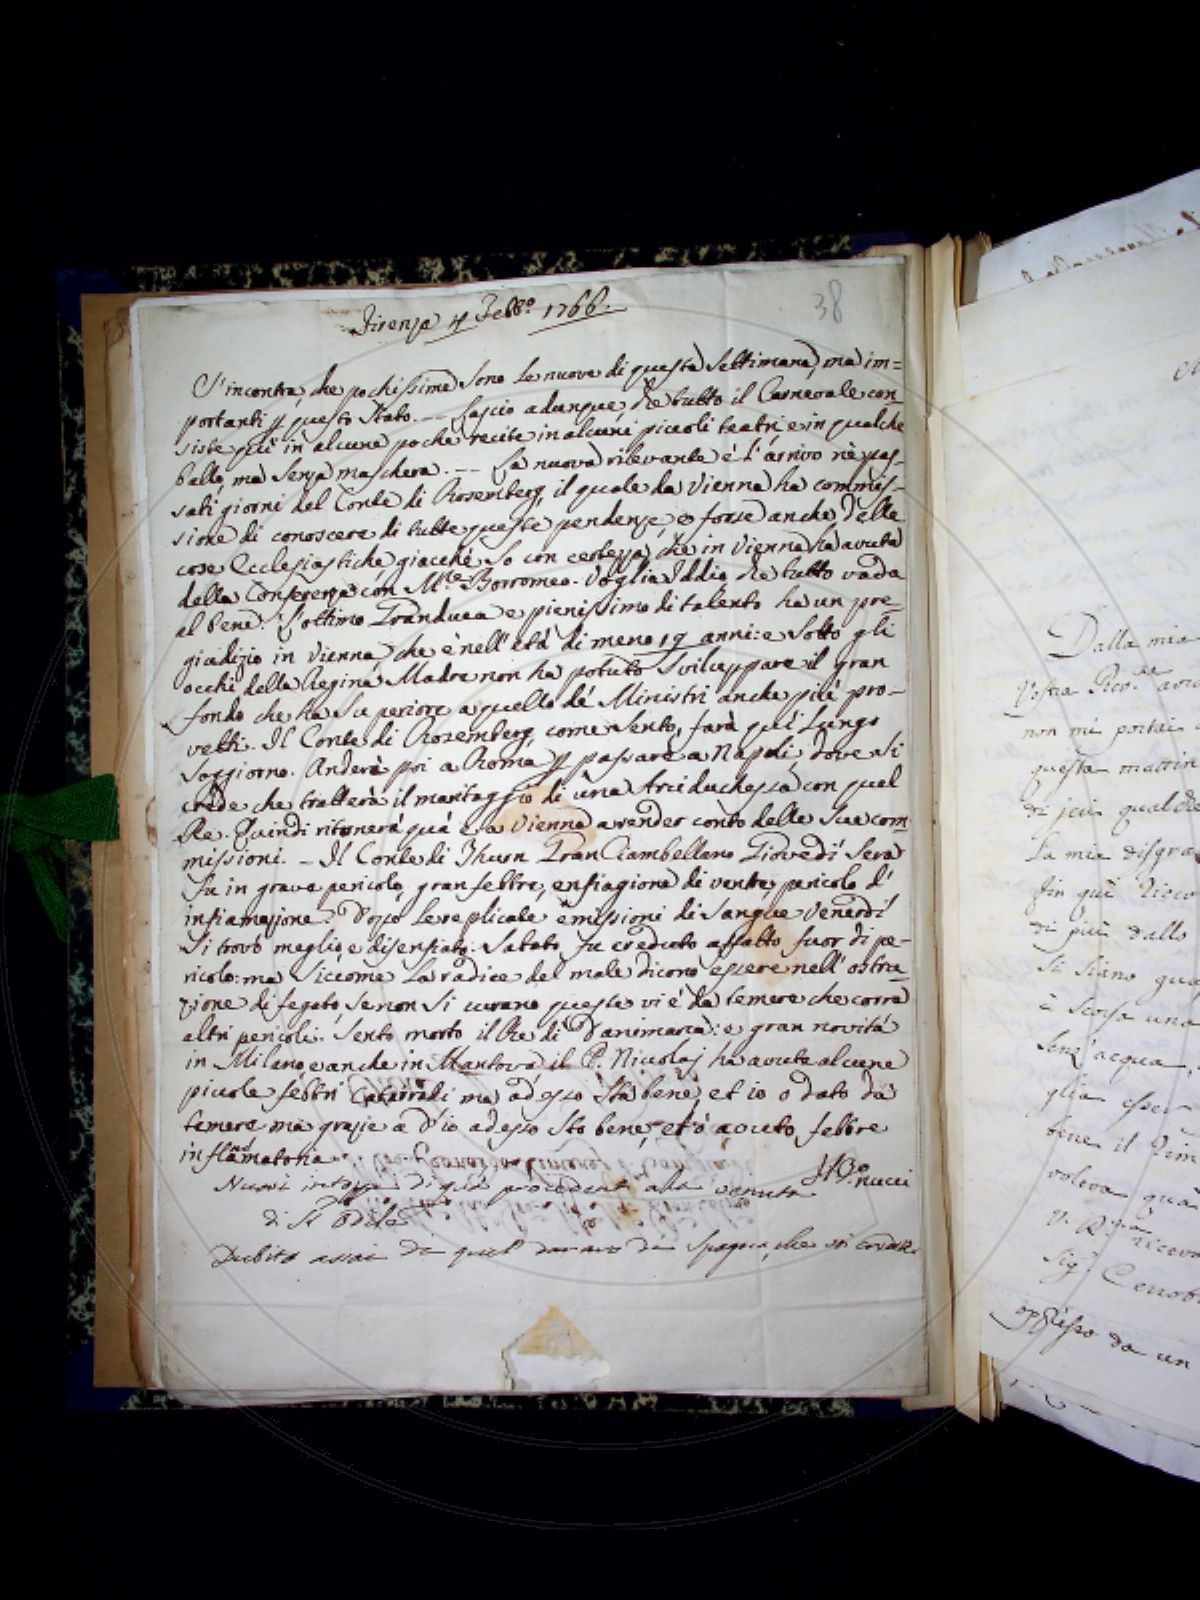 Firenze 4 Febb.o 1766.
38
S'incontra, che pochissime sono le nuove di questa settimana, ma im=
portanti p questo Stato. -- Lascio adunque, che tutto il Carnevale con
siste qui in alcune poche recite in alcuni piccoli teatri, e in qualche
ballo, ma senza maschera. -- La nuova rilevante é l'arrivo nè pas-
sati giorni del Conte di Rosemberg, il quale da Vienna ha commis-
sione di conoscere di tutte queste pendenze, e forse anche delle
cose Ecclesiastiche, giacchè so con certezza, che in Vienna ha avuta
della Conferenza con M.re Borromeo. Voglia Iddio che tutto vada
al bene. L'ottimo Granduca e pienissimo di talento ha un pre-
giudizio in Vienna, che è nell'età di meno 19 anni: e sotto gli
occhi della Regina Madre non ha potuto sviluppare il gran
fondo che ha superiore a quello de' Ministri anche più pro-
vetti. Il Conte di Rosemberg, come sento, farà quì lungo
soggiorno. Anderà poi a Roma p passare a Napoli, dove si
crede che tratterà il maritaggio di una Arciduchessa con quel
Re. Quindi ritonerà quà e a Vienna a render conto delle sue com-
missioni. - Il Conte di Thurn Gran Ciambellano Giovedì sera
fu in grave pericolo, gran febbre, enfiagione di ventre, pericolo d'
infiamazione. Dopo le replicate emissioni di sangue Venerdì
si trovò meglio, e disenfiato. Sabato fu creduto affatto fuor di pe-
ricolo: ma siccome la radice del male dicono essere nell'ostru-
zione di fegato, se non si curano queste vi é da temere che corra
altri pericoli. Sento morto il Re di Danimarca: e gran novità
in Milano, e anche in Mantova, il P. Nicolaj ha avute alcune
piccole febbri Catarrali ma adesso sta bene, et io o dato da
temere ma grazie a D'io adesso sto bene, et ò avuto febbre
inflamatoria
Nuovi intoppi di già precedenti alla venuta
di
Dubito assai di quel danaro di Spagna, che vi
Dalla mia
Vostra Rev.
non mi portai
questa mattin
di jeri qual die
La mia disgra
fin quì
di più dallo
si siano qua
senz'acqua,
voleva quà
Sig.r Cenob
oppresso da un